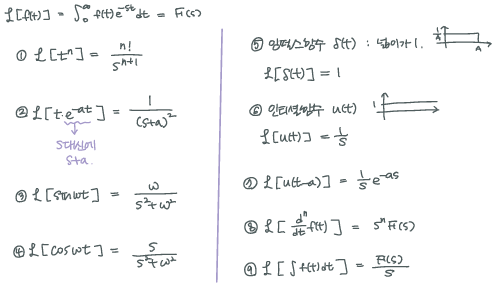 ℒ[f(t)] = ∫₀^∞ f(t)e^-st dt = F(s)
① ℒ[tⁿ] = n! / s^n+1
② ℒ[t·e^-at] = 1 / (s+a)²
s대신에
s+a.
③ ℒ[sinωt] = ω / s²+ω²
④ ℒ[cosωt] = s / s²+ω²
⑤ 임펄스함수 δ(t) : 넓이가 1. 1/A A
ℒ[δ(t)] = 1
⑥ 인디셜함수 u(t) 1
ℒ[u(t)] = 1/s
⑦ ℒ[u(t-a)] = 1/s e^-as
⑧ ℒ[dⁿ/dt f(t)] = sⁿF(s)
⑨ ℒ[∫f(t)dt] = F(s)/s